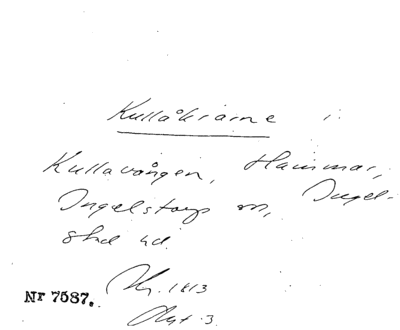 Kullåkrarne i
Kullavången, Hammar,
Ingelstorp sn, Ingel-
stad hd.
Hy. 1813
Nr 7587.
Akt 3.